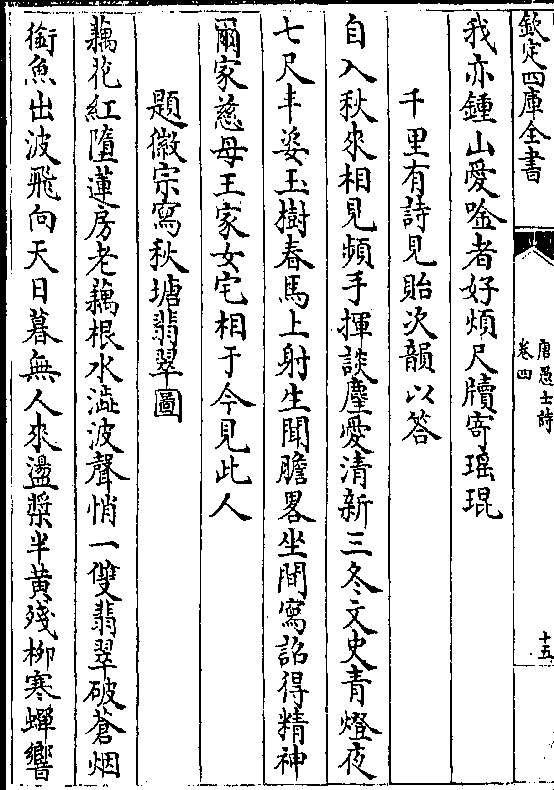 欽定四庫全書
唐愚士詩
卷四
十五
我亦鍾山愛唫者好煩尺牘寄瑶琨
千里有詩見貽次韻以答
自入秋來相見頻手揮談麈愛清新三冬文史青燈夜
七尺丰姿玉樹春馬上射生聞膽畧坐間寫詔得精神
爾家慈母王家女宅相于今見此人
題徽宗寫秋塘翡翠圖
藕花紅墮蓮房老藕根水澁波聲悄一雙翡翠破蒼烟
銜魚出波飛向天日暮無人來盪槳半黄殘柳寒蟬響